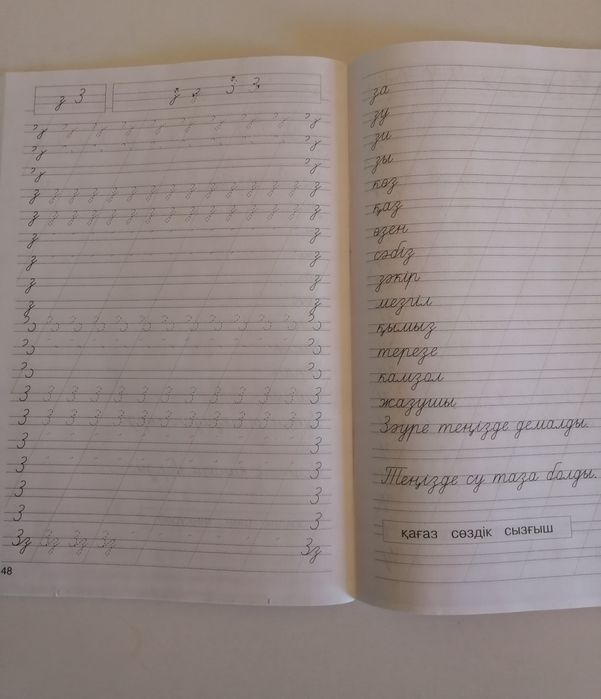 з З
з з З З
з з з з з з з з з з з
з з
з з
з з з з з з з з з з з з з з з
з з з з з з з з з з з з з з з
з з
з з
з з
з з
З З З З З З З З З З З З З
З З
З З
З З З З З З З З З З З З З
З З З З З З З З З З З З З
З З
З З
З З
З З
Зз Зз Зз Зз Зз
48
за
зу
зи
зы
көз
қаз
өзен
сәбіз
зәкір
мезгіл
қымыз
терезе
камзол
жазушы
Зәуре теңізде демалды.
Теңізде су таза болды.
қағаз сөздік сызғыш